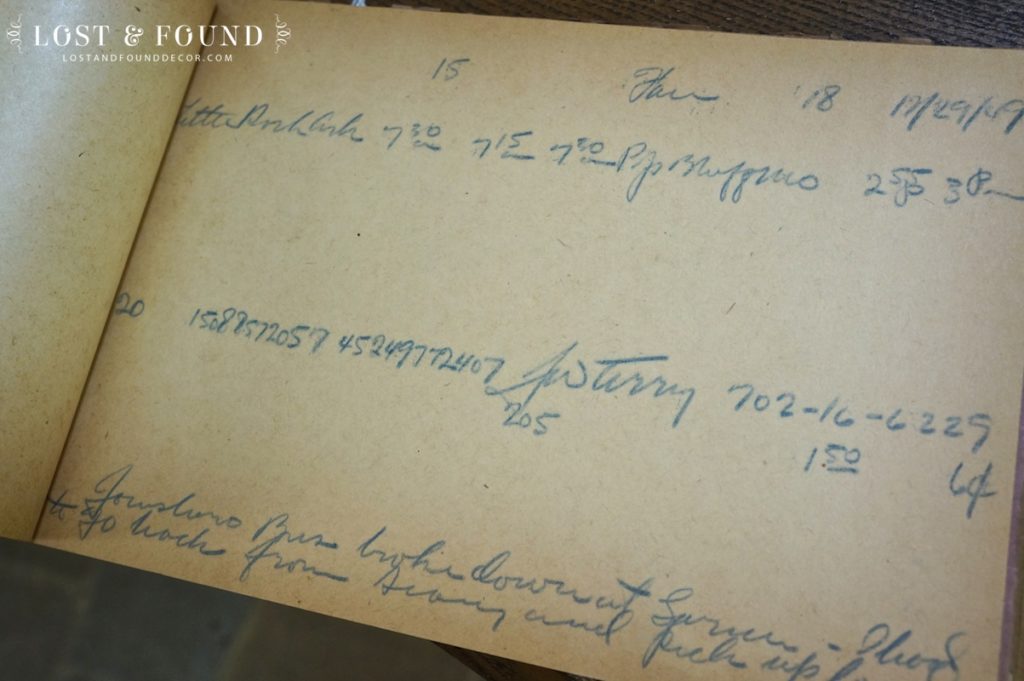 LOST & FOUND
LOSTANDFOUNDDECOR.COM
15 18 12/29/49
Little Rock Ark 7 30 7 15 7 30 Pop Bluff Mo 2 55 3 P
20 45249772407 JW Terry 702-16-6229
705 1 50 6¢
Jonesboro Bus broke down at - I had
to go back from and pick up